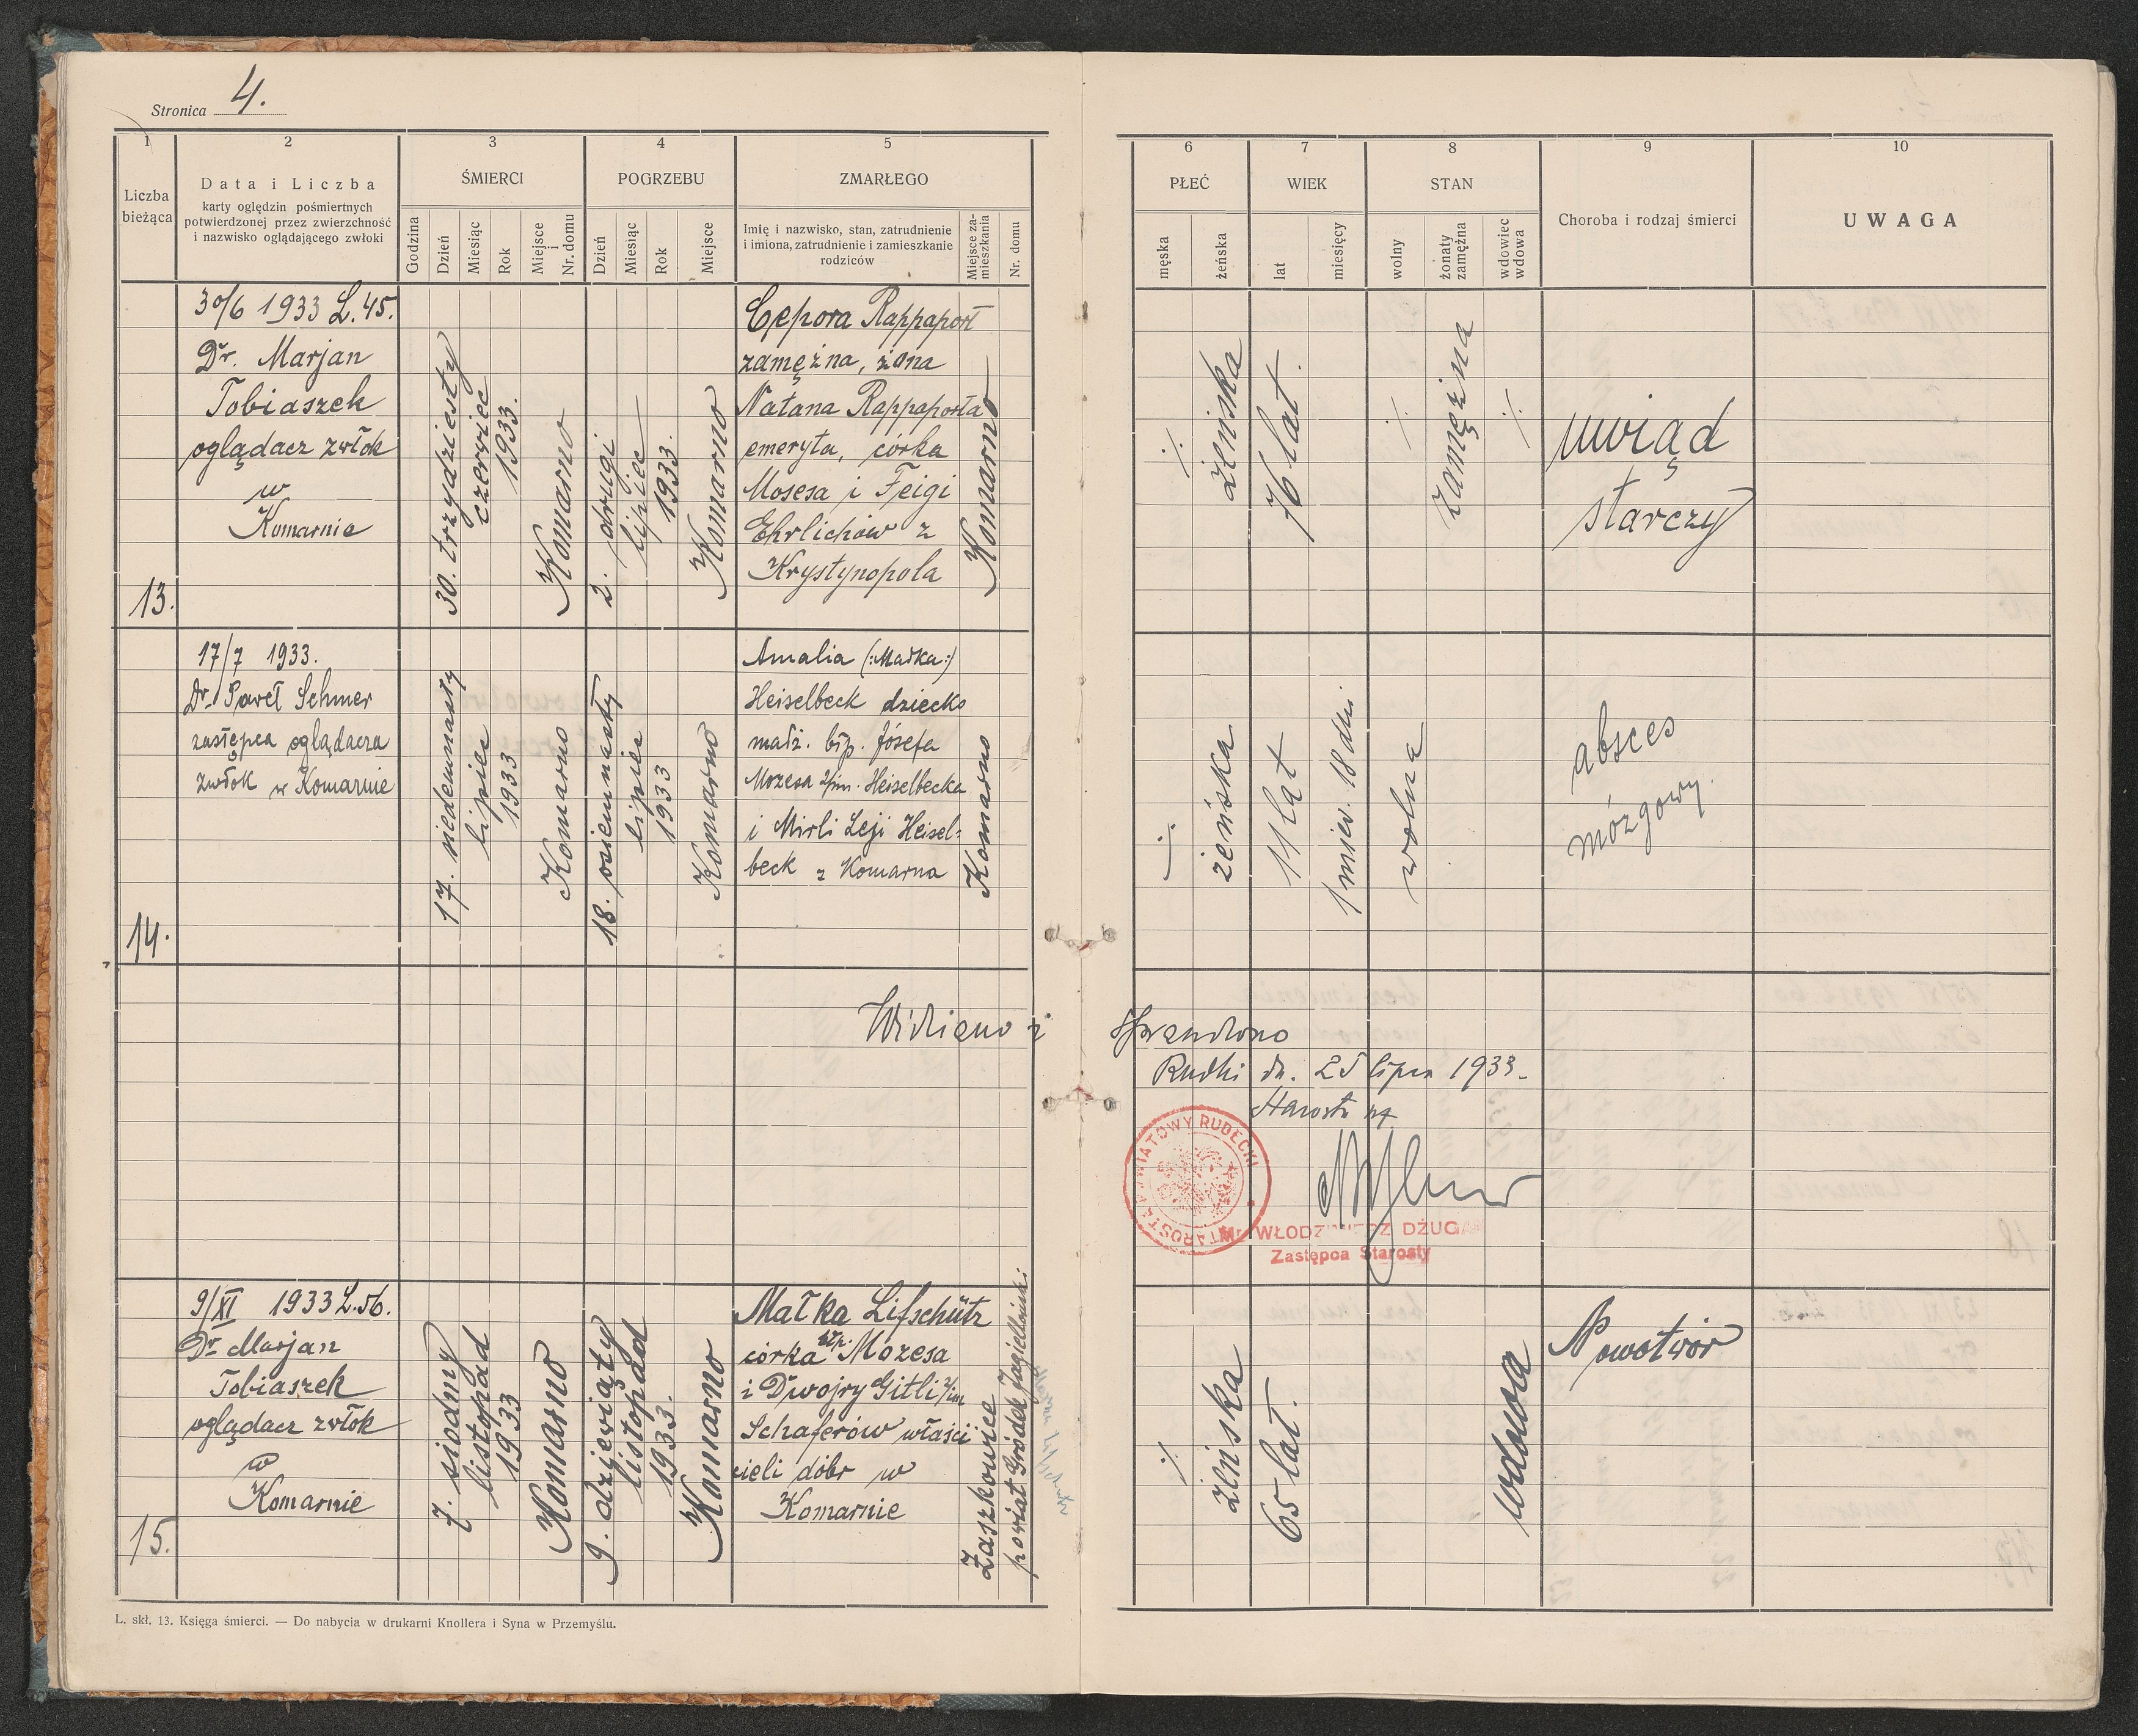 Stronica 4.
1
2
3
4
5
6
7
8
9
10
Liczba
bieżąca
Data i Liczba
karty oględzin pośmiertnych
potwierdzonej przez zwierzchność
i nazwisko oglądającego zwłoki
ŚMIERCI
Godzina
Dzień
Miesiąc
Rok
Miejsce
i
Nr. domu
POGRZEBU
Dzień
Miesiąc
Rok
Miejsce
ZMARŁEGO
Imię i nazwisko, stan, zatrudnienie
i imiona, zatrudnienie i zamieszkanie
rodziców
Miejsce za-
mieszkania
Nr. domu
PŁEĆ
męska
żeńska
WIEK
lat
miesięcy
STAN
wolny
żonaty
zamężna
wdowiec
wdowa
Choroba i rodzaj śmierci
UWAGA
13.
30/6 1933 L.45.
Dr. Marjan
Tobiaszek
oglądacz zwłok
w
Komarnie
30. trzydziesty
czerwiec
1933.
Komarno
2. drugi
lipiec
1933.
Komarno
Cepora Rappaport
zamężna, żona
Natana Rappaporta
emeryta, córka
Mosesa i Feigi
Ehrlichów z
Krystynopola
Komarno
⁒
żeńska
76 lat.
⁒
zamężna
⁒
uwiąd
starczy
14.
17/7 1933.
Dr. Paweł Sehmer
zastępca oglądacza
zwłok w Komarnie
17. siedemnasty
lipiec
1933
Komarno
18. osiemnasty
lipiec
1933
Komarno
Amalia (:Malka:)
Heiselbeck dziecko
małż. błp. Józefa
Mozesa 2/im. Heiselbecka
i Mirli Leji Heisel-
beck z Komarna
Komarno
⁒
żeńska
11 lat
1 mies. 18 dni
wolna
absces
mózgowy.
Widziano i sprawdzono
Rudki dn. 25 lipca 1933.
Starosta
STAROSTA POWIATOWY RUDECKI
Mr. WŁODZIMIERZ DŻUGA
Zastępca Starosty
15.
9/XI 1933 L.56.
Dr Marjan
Tobiaszek
oglądacz zwłok
w
Komarnie
7. siódmy
listopad
1933
Komarno
9. dziewiąty
listopad
1933.
Komarno
Małka Lifschütz
córka błp. Mozesa
i Dwojry Gitli 2/im
Schaferów właści
cieli dóbr w
Komarnie
Zaszkowice
powiat Gródek Jagielloński
⁒
żeńska
65 lat.
wdowa
Nowotwór
L. skł. 13. Księga śmierci. — Do nabycia w drukarni Knollera i Syna w Przemyślu.